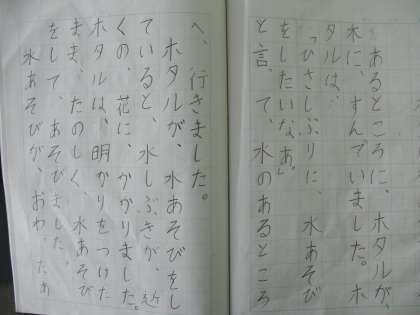 あるところに、ホタルが、
木に、すんでいました。ホ
タルは、
「ひさしぶりに、水あそび
をしたいなぁ。」
と言って、水のあるところ
へ、行きました。
ホタルが、水あそびをし
ていると、水しぶきが、近
くの、花に、かかりました。
ホタルは、明かりをつけた
まま、たのしく、水あそび
をして、あそびました。
水あそびが、おわったあ